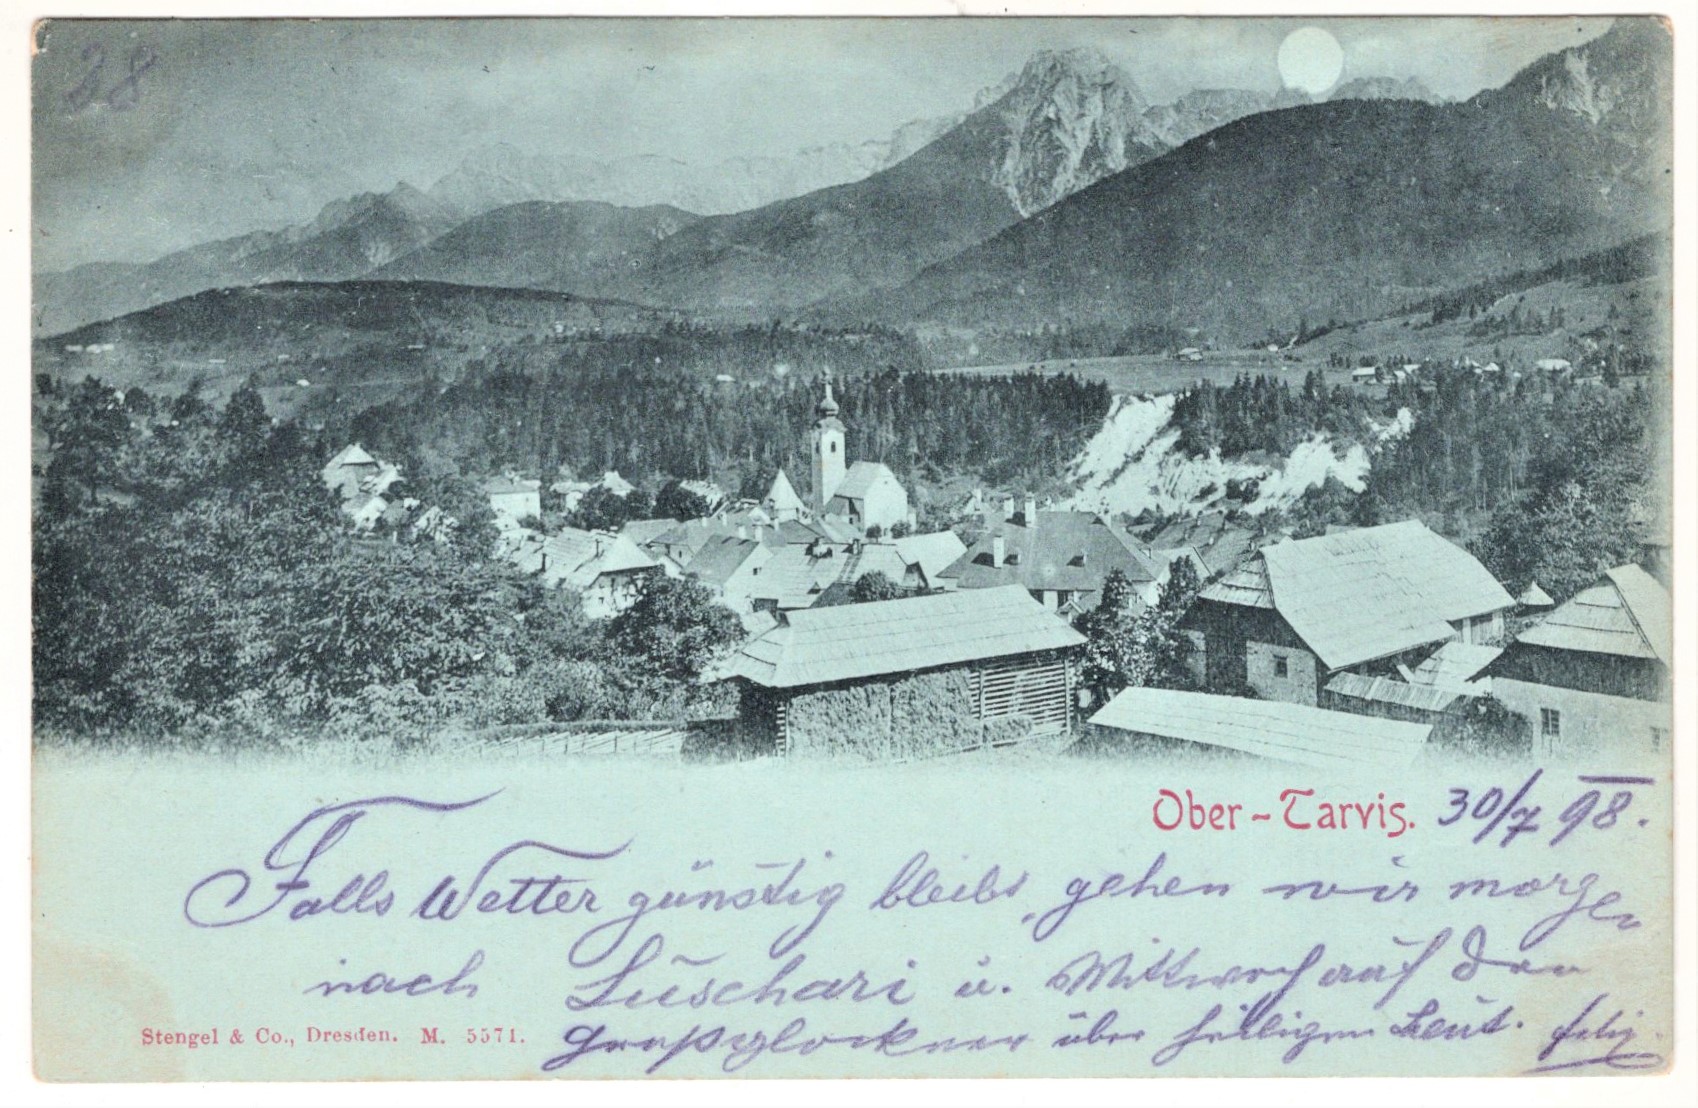 28
Ober-Tarvis. 30/7 98.
Falls Wetter günstig bleibt, gehen wir morgen
nach Luschari u. Mittwoch auf den
Großglockner über heiligen
Stengel & Co., Dresden. M. 5571.